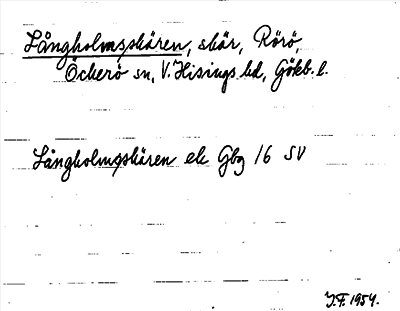 Långholmsskären, skär, Rörö,
Öckerö sn, V. Hisings hd, Gökb. l.
Långholmsskären ek Gbg 16 SV
J.F. 1954.